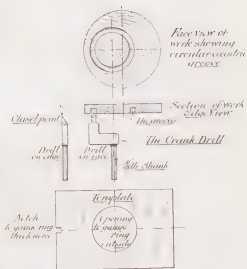 Face view of
work showing
circular eccentric
groove
Section of work
Edge View
The groove
Chisel point
The Crank Drill
Drill
on edge
Drill
on face
Shank
Notch
to gauge ring
thickness
Templets
Opening
to gauge
ring